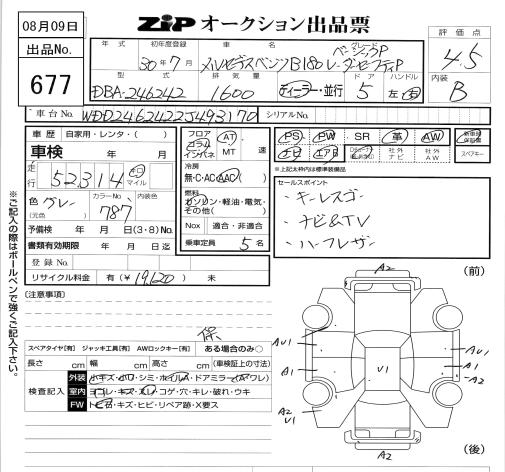 08月09日
出品No.
677
ZIPオークション出品票
年式 初年度登録 車名 グレード 評価点
30年7月 メルセデスベンツB180 ベーシックP
レーダーセーフティP
4.5
型式 排気量 ドア ハンドル 内装
DBA-246242 1600 ディーラー・並行 5 左・右 B
車台No. WDD2462422J493170 シリアルNo.
車歴 自家用・レンタ・( )
車検 年 月
走行 52314 キロ マイル
色 グレー (元色) カラーNo. 787 内装色
予備検 年 月 日(3・8)No.
書類有効期限 年 月 日迄
登録No.
リサイクル料金 有(¥19,120) 未
フロア コラム インパネ AT MT 速
冷房 無・C・AC・AAC
燃料 ガソリン・軽油・電気・その他( )
Nox 適合・非適合
乗車定員 5名
PS PW SR 革 AW 新車時保証書
エアB 社外ナビ 社外AW スペアキー
※上記太枠内は標準装備品
セールスポイント
・キーレスゴー
・ナビ&TV
・ハーフレザー
※ご記入の際はボールペンで強くご記入下さい。
(注意事項)
保
スペアタイヤ[有] ジャッキ工具[有] AWロックキー[有] ある場合のみ○
長さ cm 幅 cm 高さ cm (車検証上の寸法)
検査記入
外装 小キズ・小ワ・シミ・ホイルA・ドアミラー(A・ワレ)
室内 ヨゴレ・キズ・スレ・コゲ・穴・キレ・破れ・ウキ
FW トビ石・キズ・ヒビ・リペア跡・X要ス
(前)
A2
AU1
A1
A2
U1
V1
AU1
A1
A2
A2
(後)